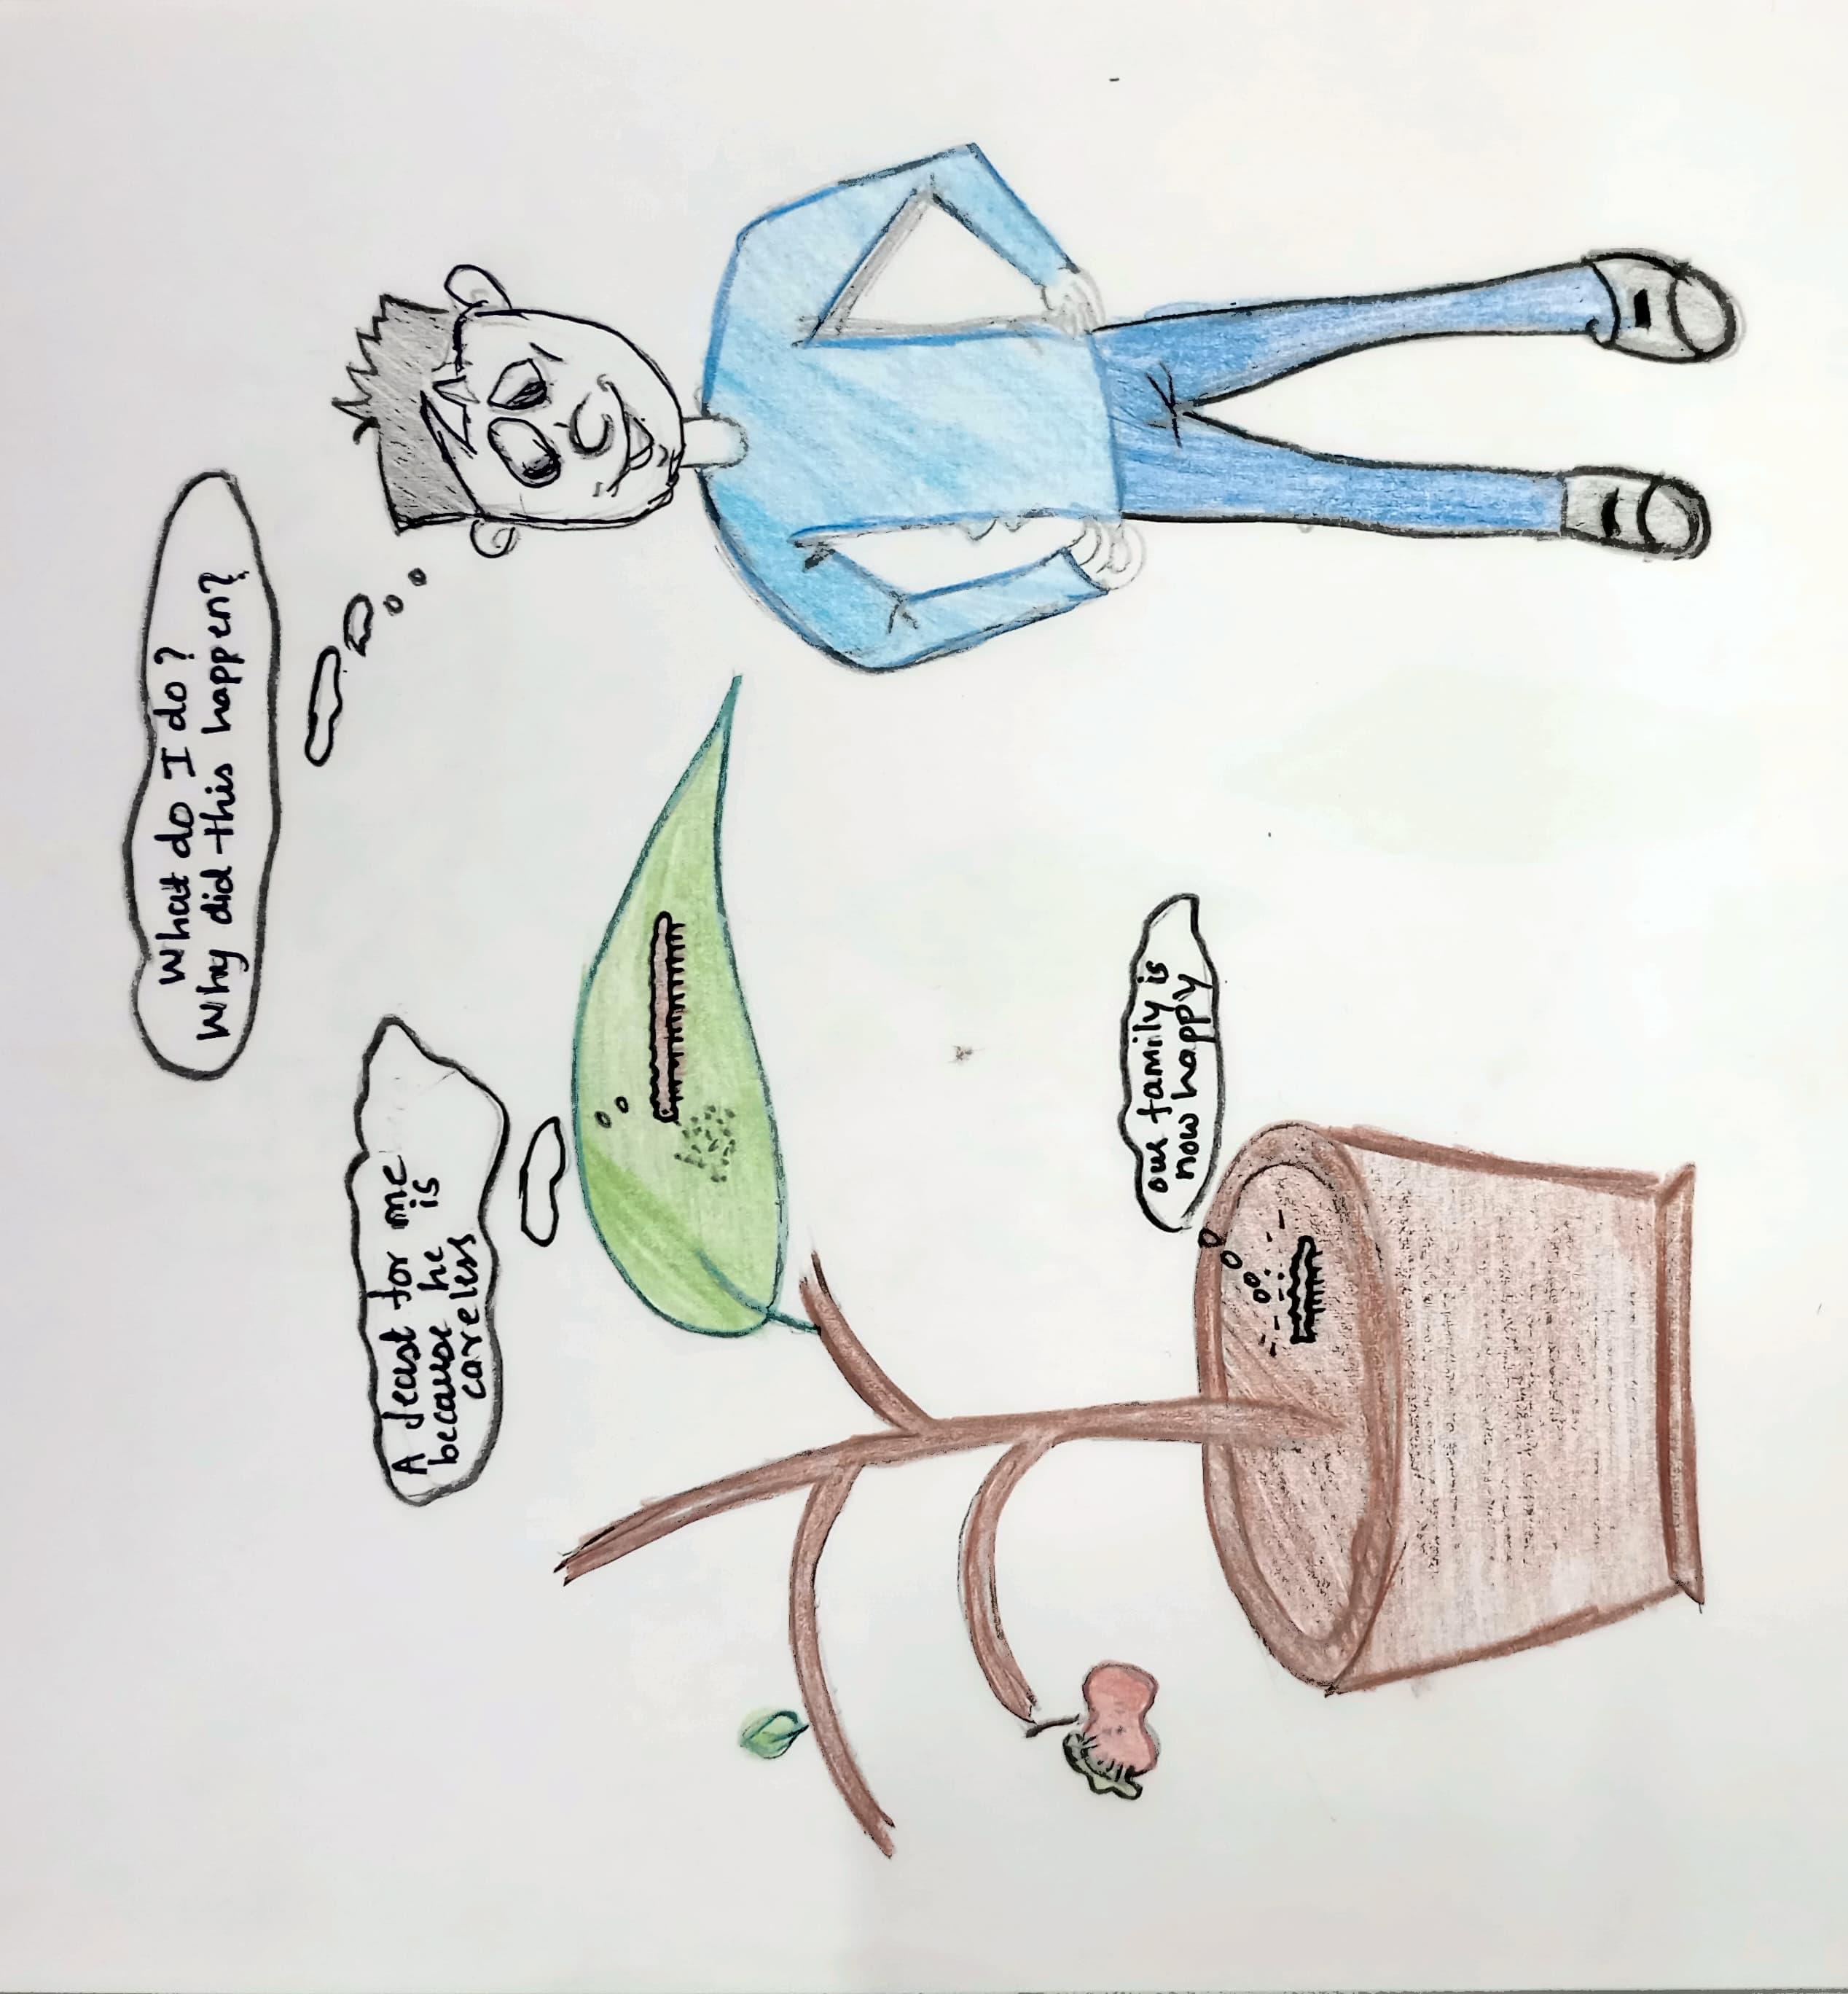 What do I do?
Why did this happen?
A feast for me
because he is
careless
our family is
now happy